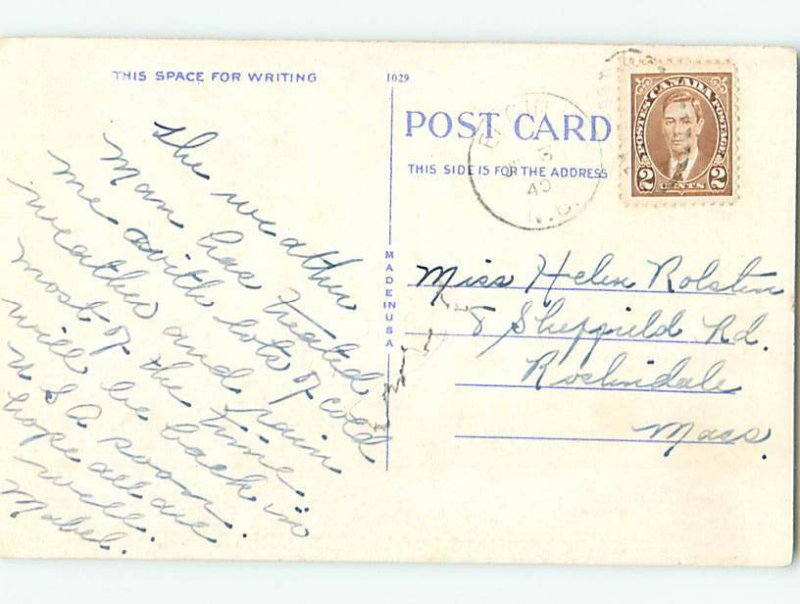 THIS SPACE FOR WRITING
1029
The weather
man has treated
me with lots of cold
weather and rain
most of the time.
Will be back in
U S A soon.
hope all are
well.
Mabel.
MADE IN USA
POST CARD
THIS SIDE IS FOR THE ADDRESS
3
40
N.B.
POSTES CANADA POSTAGE
2 CENTS 2
Miss Helen Rolsten
8 Sheffield Rd.
Roslindale
Mass.